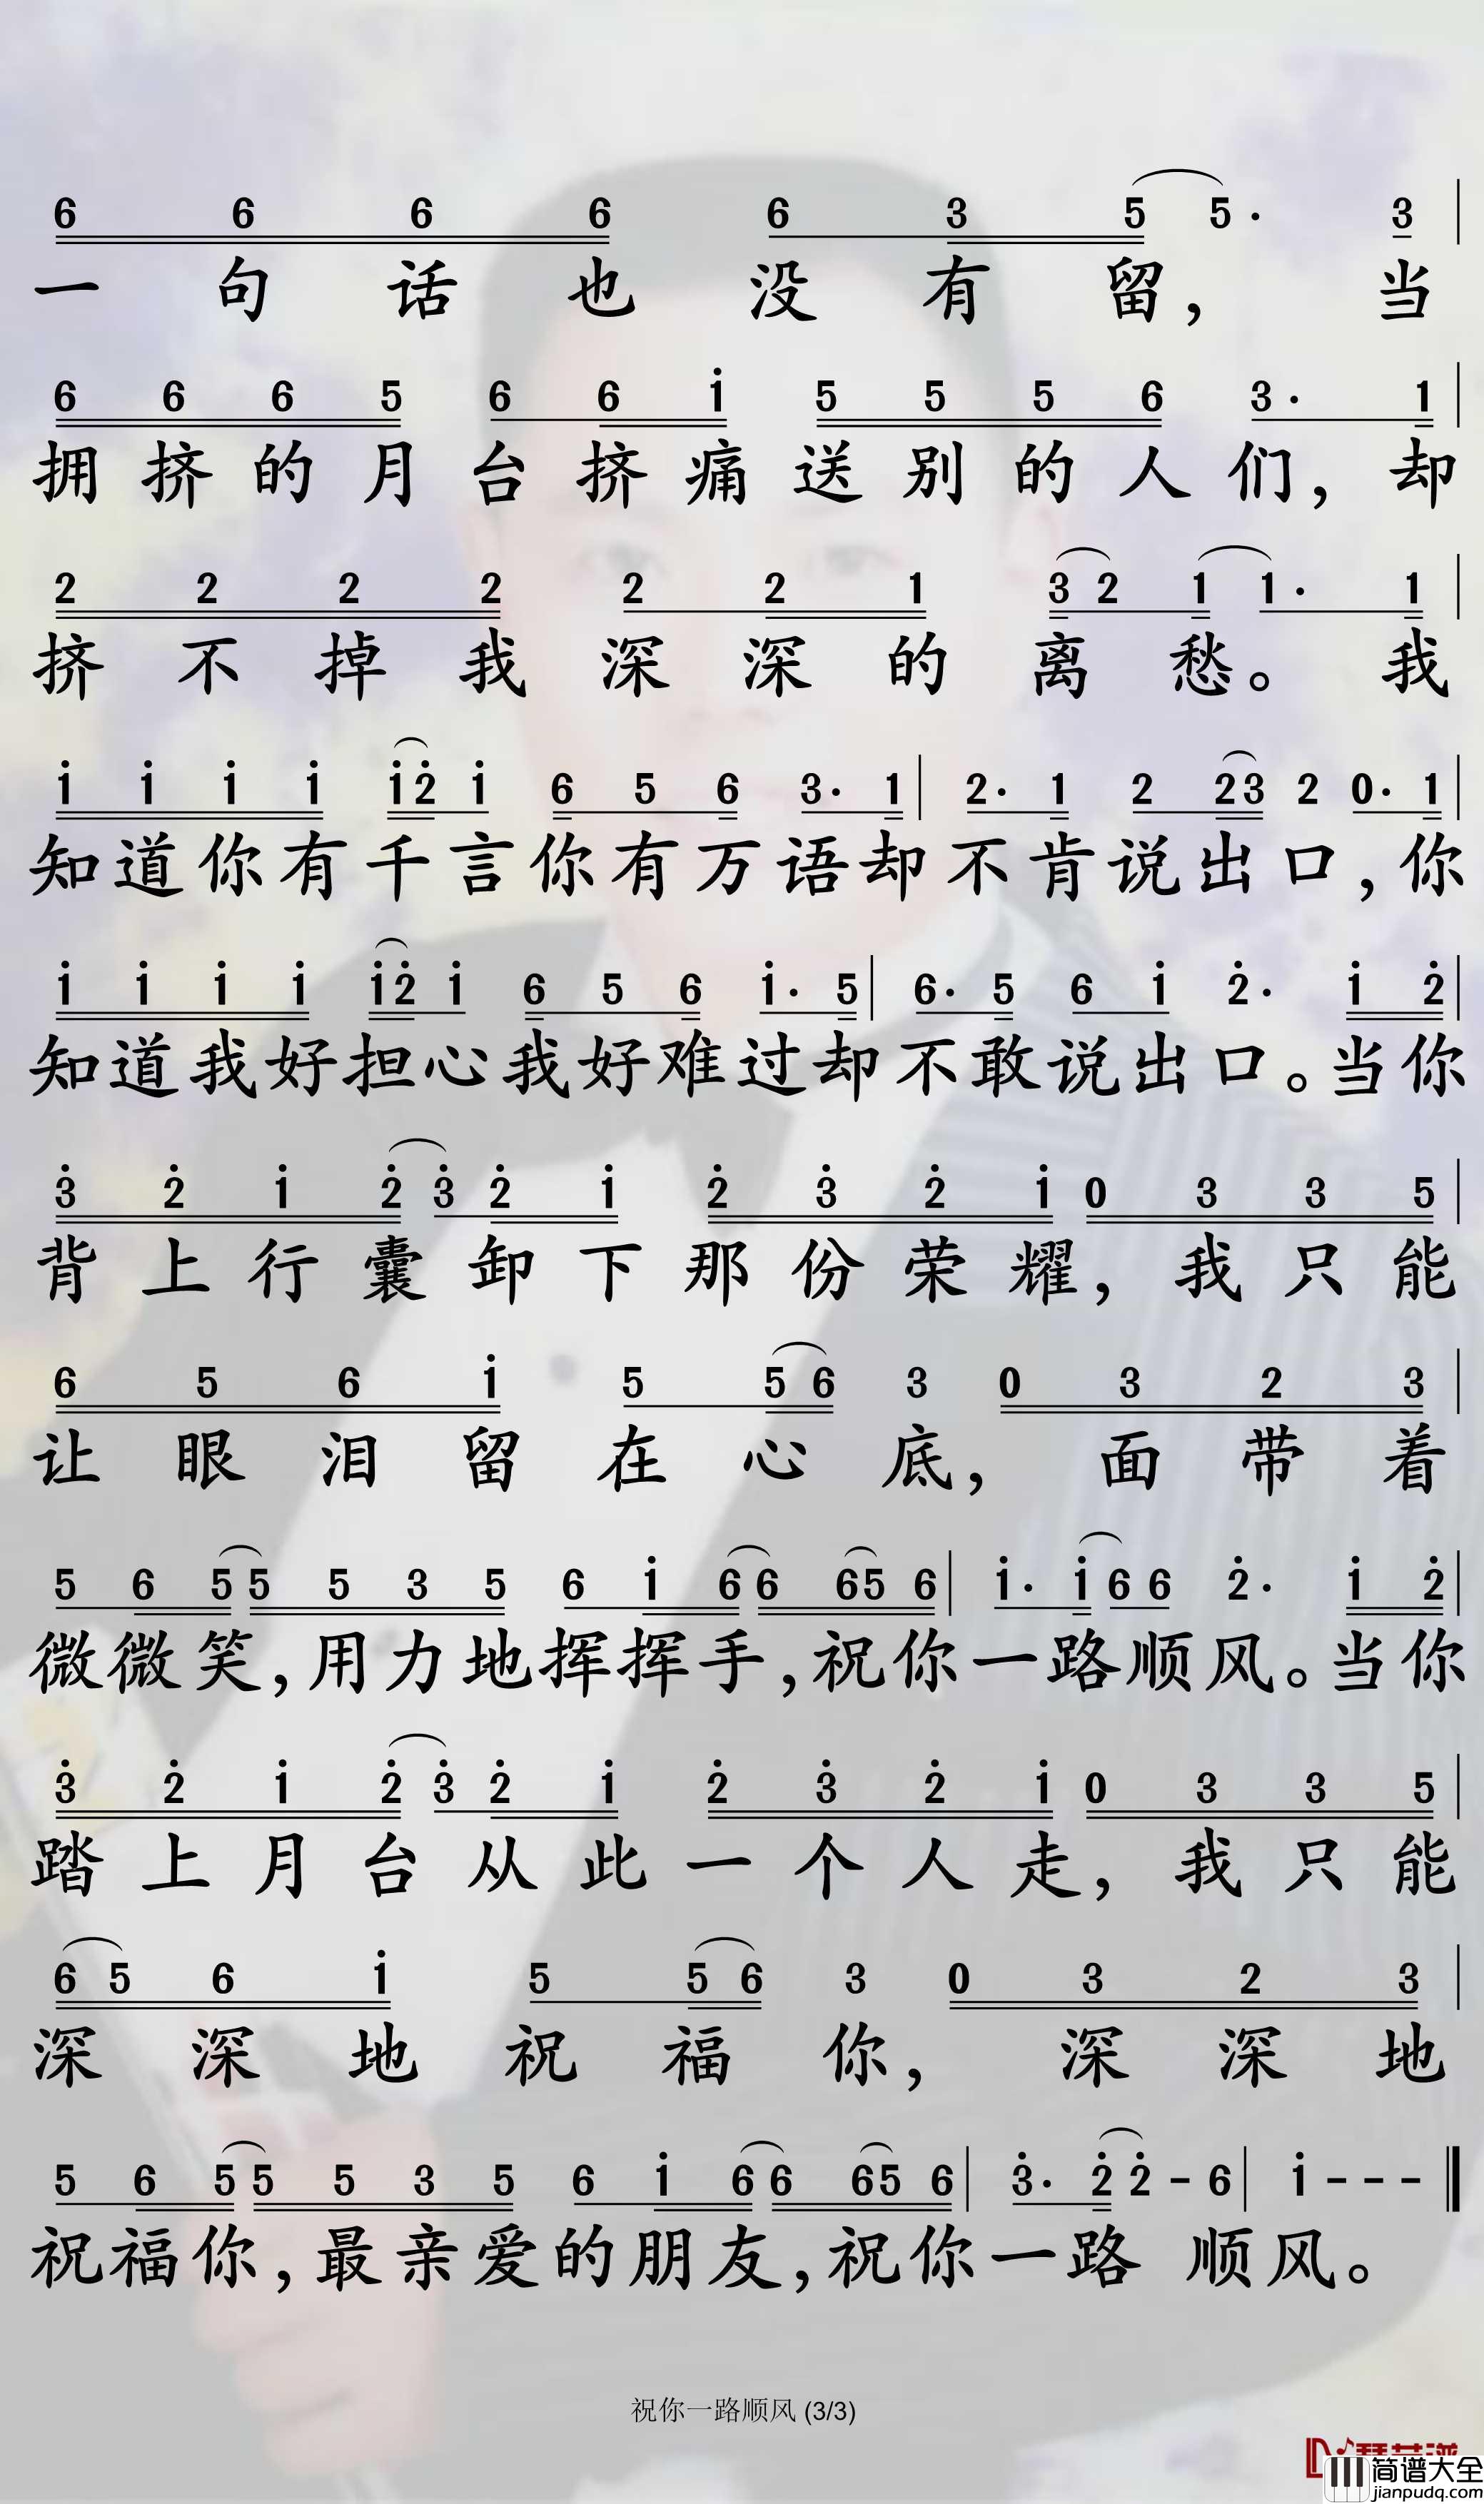 6 6 6 6 6 3 5 5· 3 |
一句话也没有留，当
6 6 6 5 6 6 i 5 5 5 6 3· 1 |
拥挤的月台挤痛送别的人们，却
2 2 2 2 2 2 1 3 2 1 1· 1 |
挤不掉我深深的离愁。我
i i i i i 2̇ i 6 5 6 3· 1 | 2· 1 2 2 3 2 0· 1 |
知道你有千言你有万语却不肯说出口，你
i i i i i 2̇ i 6 5 6 i· 5 | 6· 5 6 i 2̇· i 2̇ |
知道我好担心我好难过却不敢说出口。当你
3̇ 2̇ i 2̇ 3̇ 2̇ i 2̇ 3̇ 2̇ i 0 3 3 5 |
背上行囊卸下那份荣耀，我只能
6 5 6 i 5 5 6 3 0 3 2 3 |
让眼泪留在心底，面带着
5 6 5 5 5 3 5 6 i 6 6 6 5 6 | i· i 6 6 2̇· i 2̇ |
微微笑，用力地挥挥手，祝你一路顺风。当你
3̇ 2̇ i 2̇ 3̇ 2̇ i 2̇ 3̇ 2̇ i 0 3 3 5 |
踏上月台从此一个人走，我只能
6 5 6 i 5 5 6 3 0 3 2 3 |
深深地祝福你，深深地
5 6 5 5 5 3 5 6 i 6 6 6 5 6 | 3̇· 2̇ 2̇ - 6 | i - - - ‖
祝福你，最亲爱的朋友，祝你一路 顺风。
祝你一路顺风 (3/3)
简谱大全
jianpudq.com